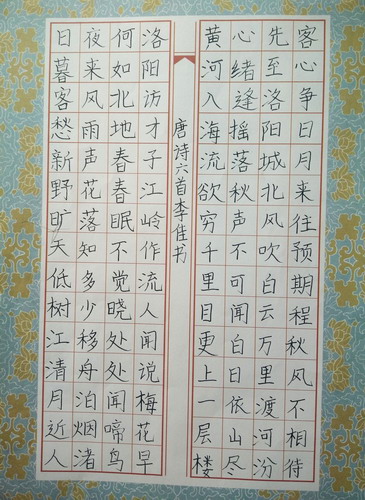 客心争日月来往预期程秋风不相待
先至洛阳城北风吹白云万里渡河汾
心绪逢摇落秋声不可闻白日依山尽
黄河入海流欲穷千里目更上一层楼
唐诗六首李佳书
洛阳访才子江岭作流人闻说梅花早
何如北地春春眠不觉晓处处闻啼鸟
夜来风雨声花落知多少移舟泊烟渚
日暮客愁新野旷天低树江清月近人